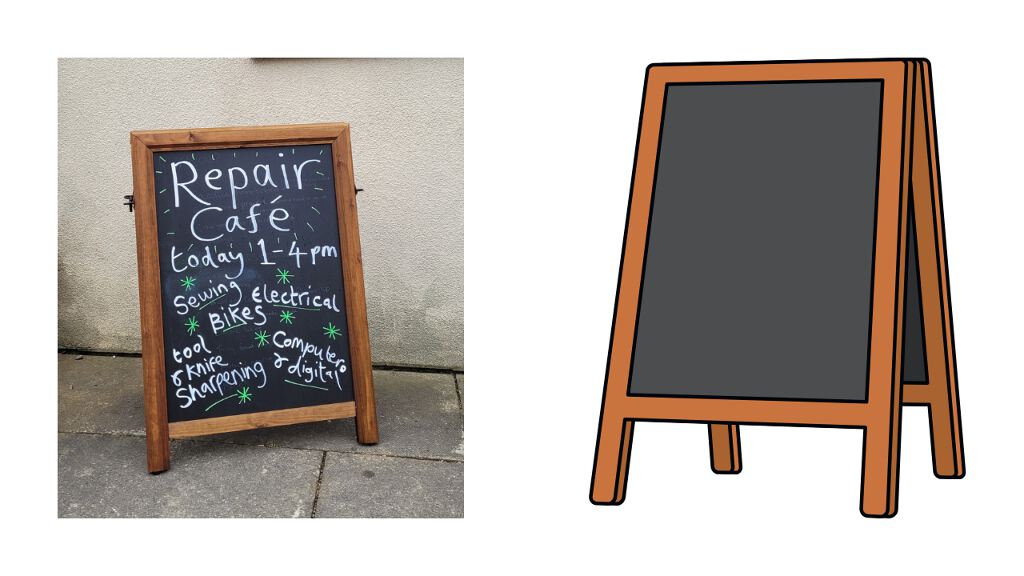 Repair
Café
today 1-4pm
Sewing Electrical
BIKES
tool
& knife
Sharpening
Computers
& digital